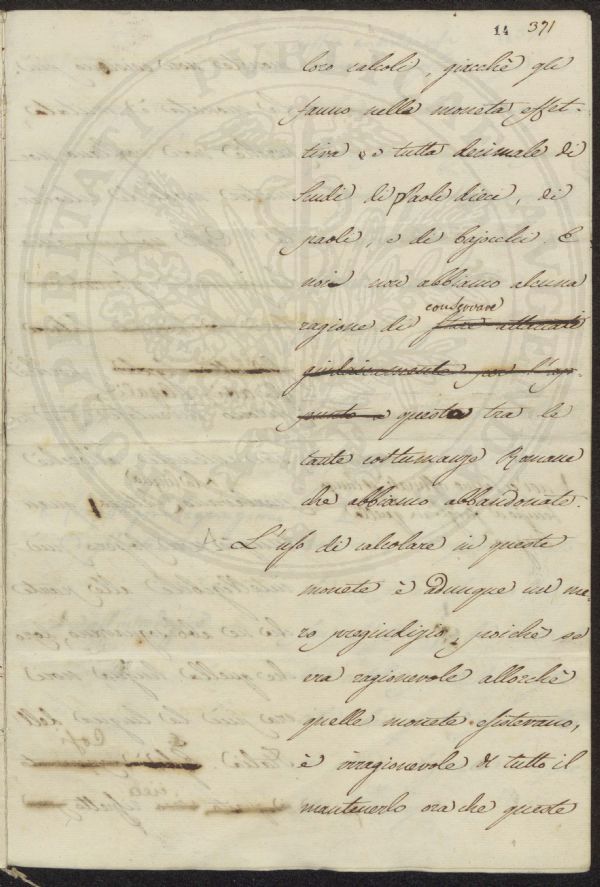 14 391
loro calcoli, giacchè gli
fanno nella moneta effet-
tiva, e tutta decimale di
Scudi di Paoli dieci, di
paoli, e di bajocchi. E
noi non abbiamo alcuna
conservare
ragione di
per l'ap-
punto e questa tra le
tante costumanze Romane
che abbiamo abbandonate.
L'uso di calcolare in queste
monete è adunque un me-
ro pregiudizio, poichè se
era ragionevole allorchè
quelle monete esistevano,
è irragionevole di tutto il
mantenerlo ora che queste